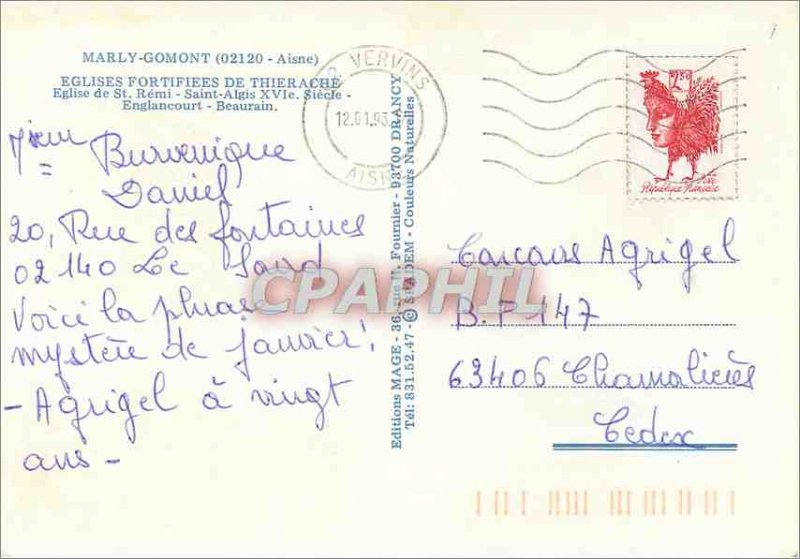 MARLY-GOMONT (02120 - Aisne)
EGLISES FORTIFIEES DE THIERACHE
Eglise de St. Rémi - Saint-Algis XVIe. Siècle -
Englancourt - Beaurain.
VERVINS
12.01.93
AISNE
2,50
République Française
Editions MAGE - 36, rue H. Fournier - 93700 DRANCY
Tél: 831.52.47 - © SPADEM - Couleurs Naturelles
Daniel
20, Rue des fontaines
02140 Le Sourd
Voici la phrase
mystère de janvier!
- Agrigel à vingt
ans -
Agrigel
B.P 147
63406 Chamalières
Cedex
CPAPHIL